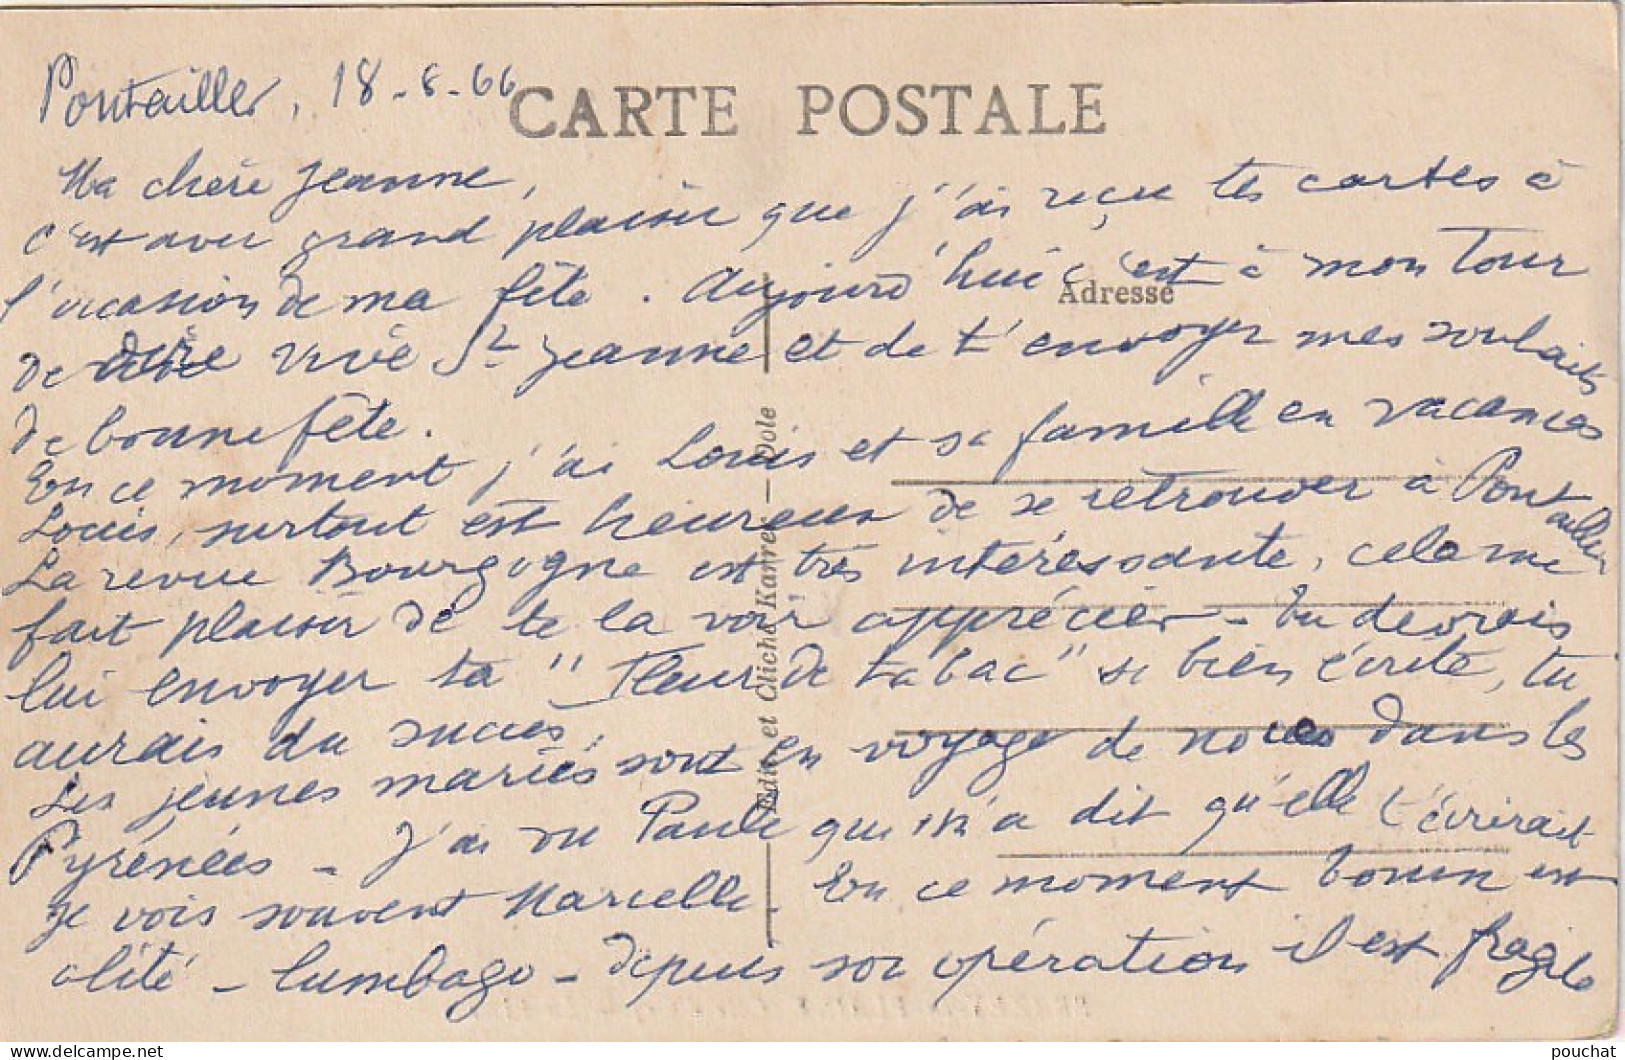 Pontailler, 18-8-66
CARTE POSTALE
Ma chère Jeanne,
c'est avec grand plaisir que j'ai reçu tes cartes à
l'occasion de ma fête. Aujourd'hui c'est à mon tour
Adresse
de dire vive St Jeanne et de t'envoyer mes souhaits
de bonne fête.
En ce moment j'ai Louis et sa famille en vacances
Louis, surtout est heureux de se retrouver à Pontailler
La revue Bourgogne est très intéressante, cela me
fait plaisir de te la voir apprécier - Tu devrais
lui envoyer ta "Fleur de tabac" si bien écrite, tu
aurais du succès.
Les jeunes mariés sont en voyage de noces dans les
Pyrénées - J'ai vu Paule qui m'a dit qu'elle t'écrirait
Je vois souvent Marcelle. En ce moment est
alité - lumbago - depuis son opération il est fragile
Edit. et Cliché Karrer - Dole
pouchat
delcampe.net